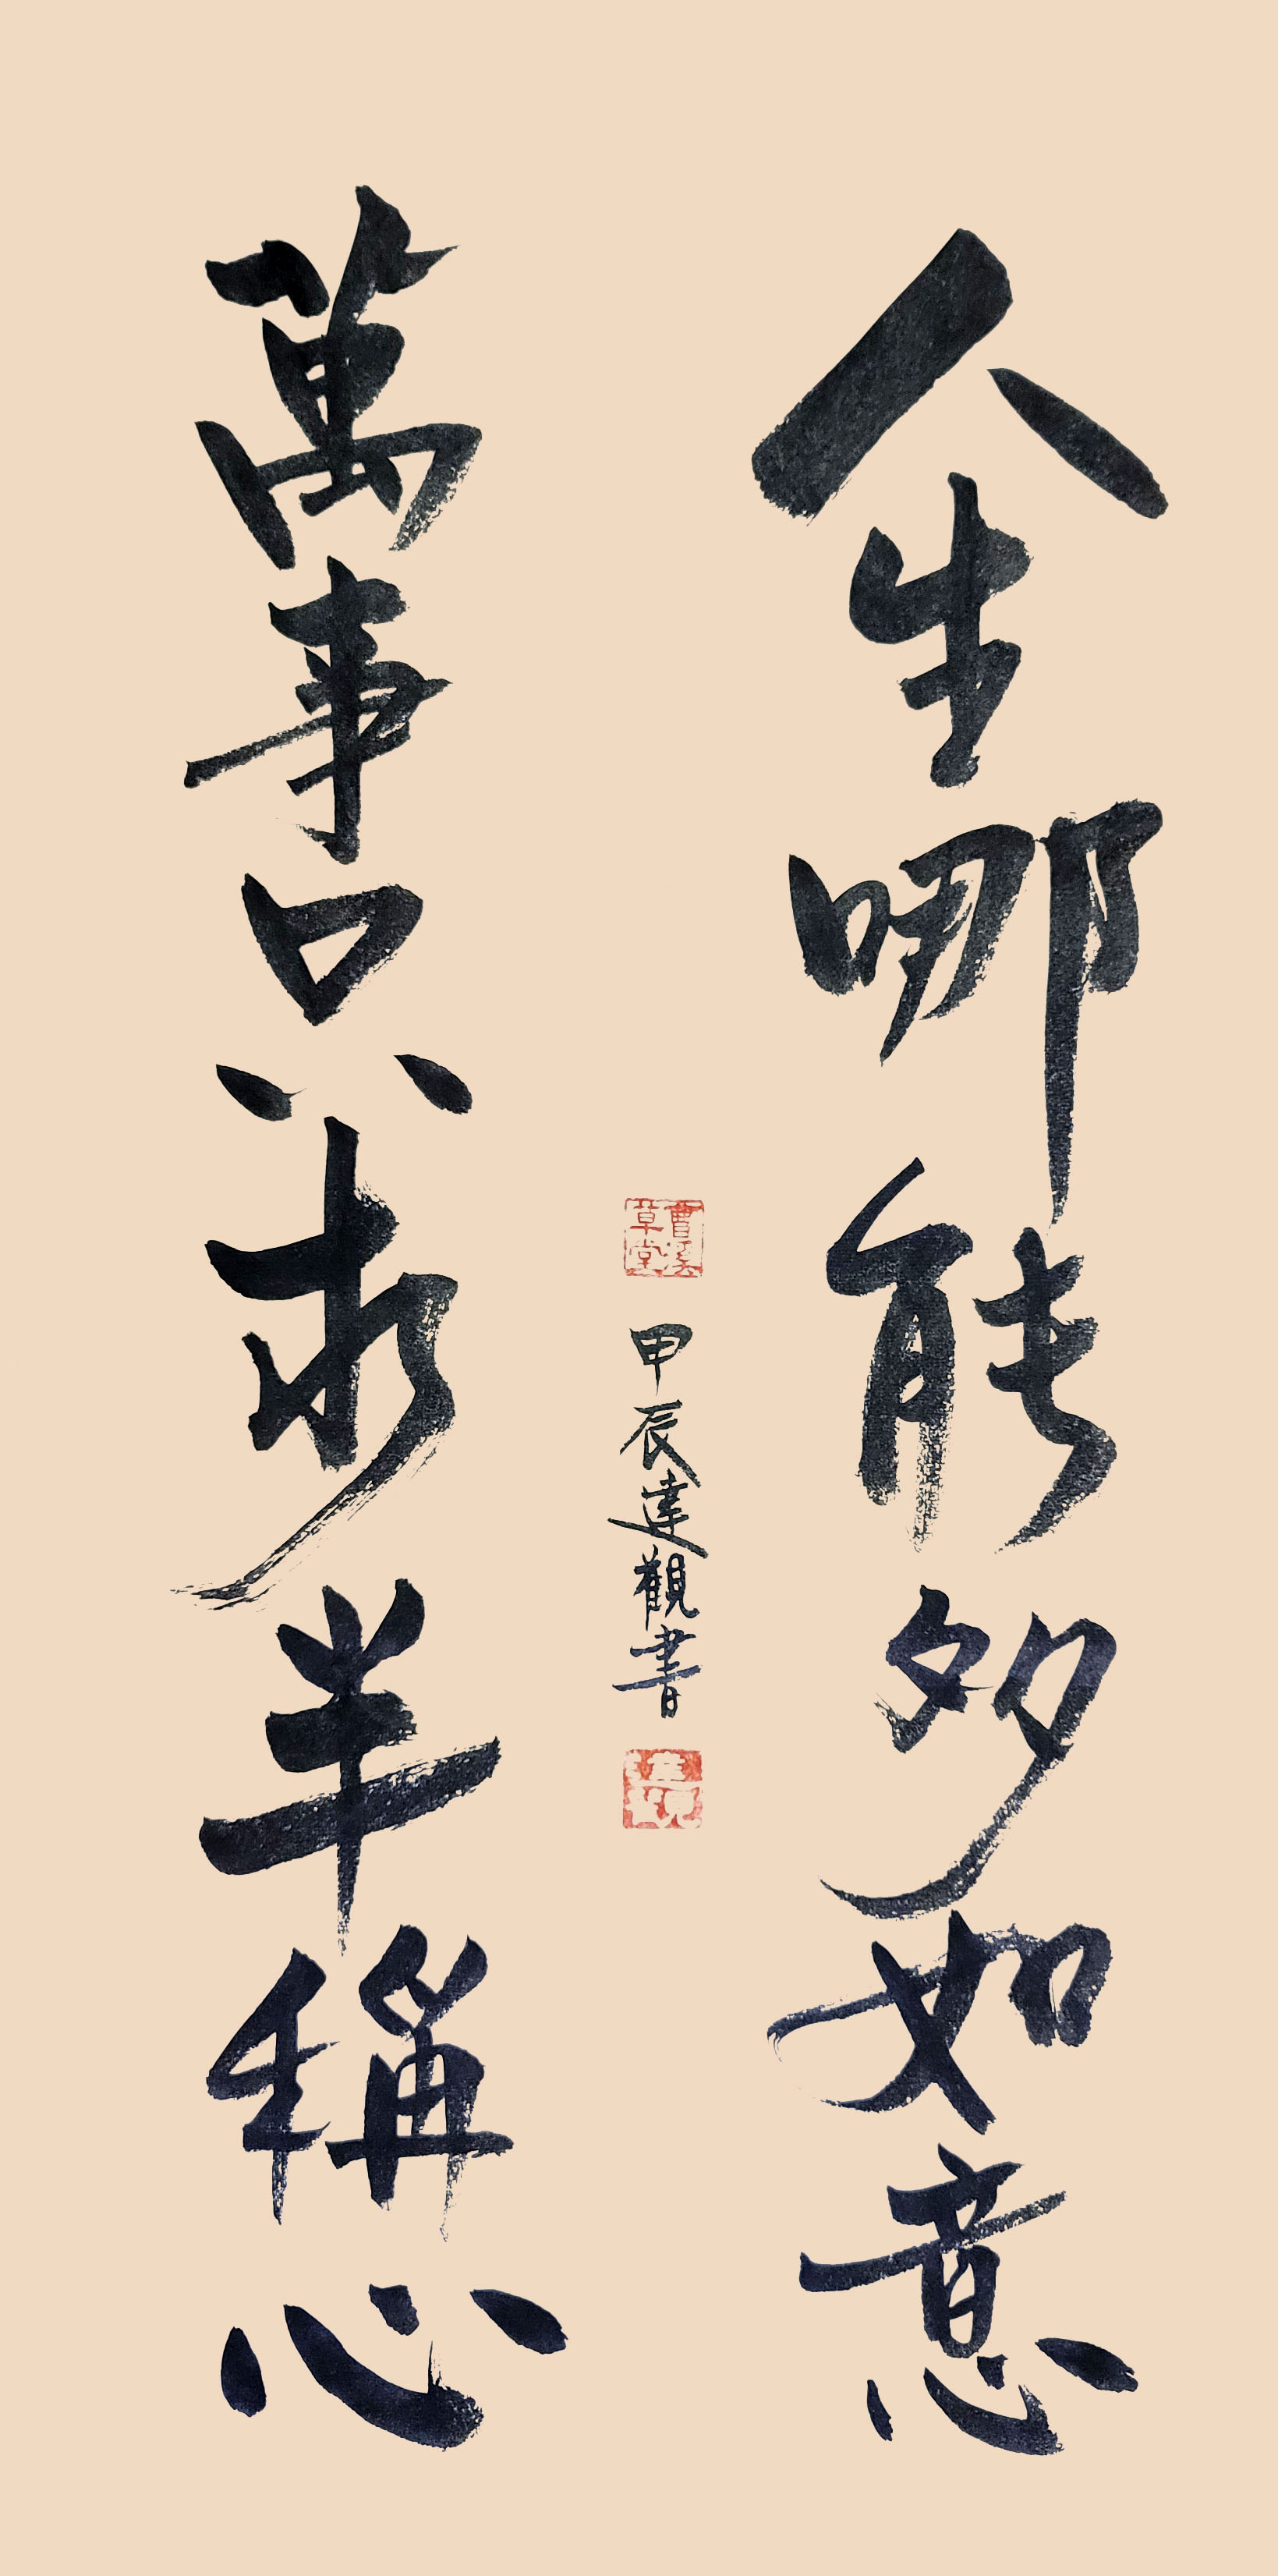 人生哪能多如意
萬事只求半稱心
曹溪草堂
甲辰達觀書
達觀